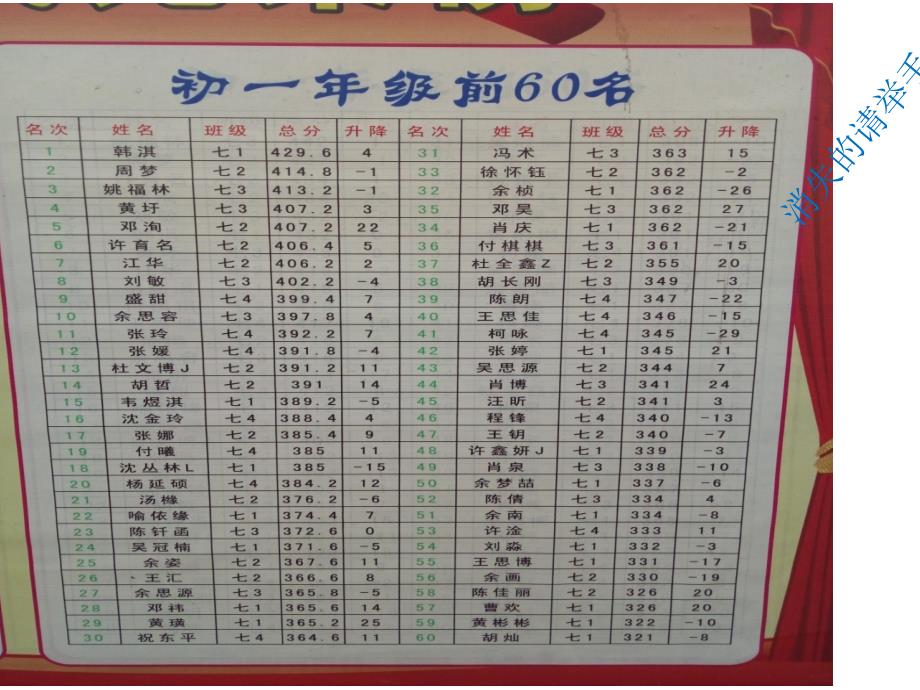 初一年级前60名
名次 姓名 班级 总分 升降 名次 姓名 班级 总分 升降
1 韩淇 七1 429.6 4 31 冯术 七3 363 15
2 周梦 七2 414.8 -1 33 徐怀钰 七2 362 -2
3 姚福林 七3 413.2 -1 32 余桢 七3 362 -26
4 黄圩 七3 407.2 3 35 邓昊 七3 362 27
5 邓洵 七2 407.2 22 34 肖庆 七1 362 -21
6 许育名 七2 406.4 5 36 付棋棋 七3 361 -15
7 江华 七2 406.2 2 37 杜全鑫Z 七2 355 20
8 刘敏 七3 402.2 -4 38 胡长刚 七3 349 -3
9 盛甜 七4 399.4 7 39 陈朗 七4 347 -22
10 余思容 七3 397.8 4 40 王思佳 七4 346 -15
11 张玲 七4 392.2 7 41 柯咏 七4 345 -29
12 张媛 七4 391.8 -4 42 张婷 七1 345 21
13 杜文博J 七2 391.2 11 43 吴思源 七2 344 7
14 胡哲 七2 391 14 44 肖博 七3 341 24
15 韦煜淇 七1 389.2 -5 45 汪昕 七2 341 3
16 沈金玲 七4 388.4 4 46 程锋 七4 340 -13
17 张娜 七2 385.4 9 47 王钥 七2 340 -7
19 付曦 七4 385 11 48 许鑫妍J 七1 339 -3
18 沈丛林L 七1 385 -15 49 肖泉 七3 338 -10
20 杨延硕 七4 384.2 12 50 余梦喆 七1 337 -6
21 汤橼 七2 376.2 -6 52 陈倩 七3 334 4
22 喻依缘 七1 374.4 7 51 余南 七1 334 -8
23 陈钎函 七3 372.6 0 53 许淦 七4 333 11
24 吴冠楠 七1 371.6 -5 54 刘淼 七1 332 -3
25 余姿 七2 367.6 11 55 王思博 七1 331 -17
26 王汇 七2 366.6 8 56 余画 七2 330 -19
27 余思源 七3 365.8 -5 58 陈佳丽 七2 326 20
28 邓祎 七1 365.6 14 57 曹欢 七1 326 20
29 黄璜 七1 365.6 25 59 黄彬彬 七1 322 -10
30 祝东平 七4 364.6 11 60 胡灿 七1 321 -8
消失的请举手